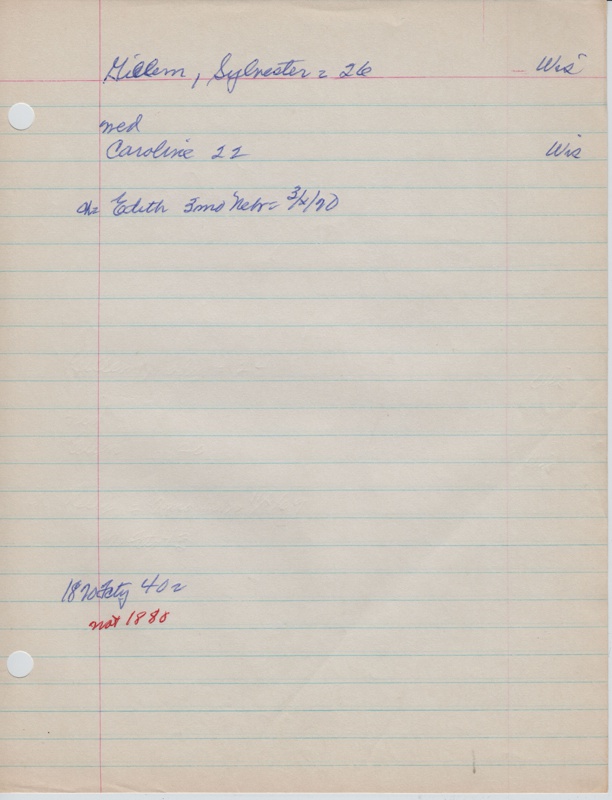 Gillem, Sylvester = 26 Wis
med
Caroline 22 Wis
ch= Edith 3mo Nebr= 3/x/70
1870 Fcty 40=
not 1880